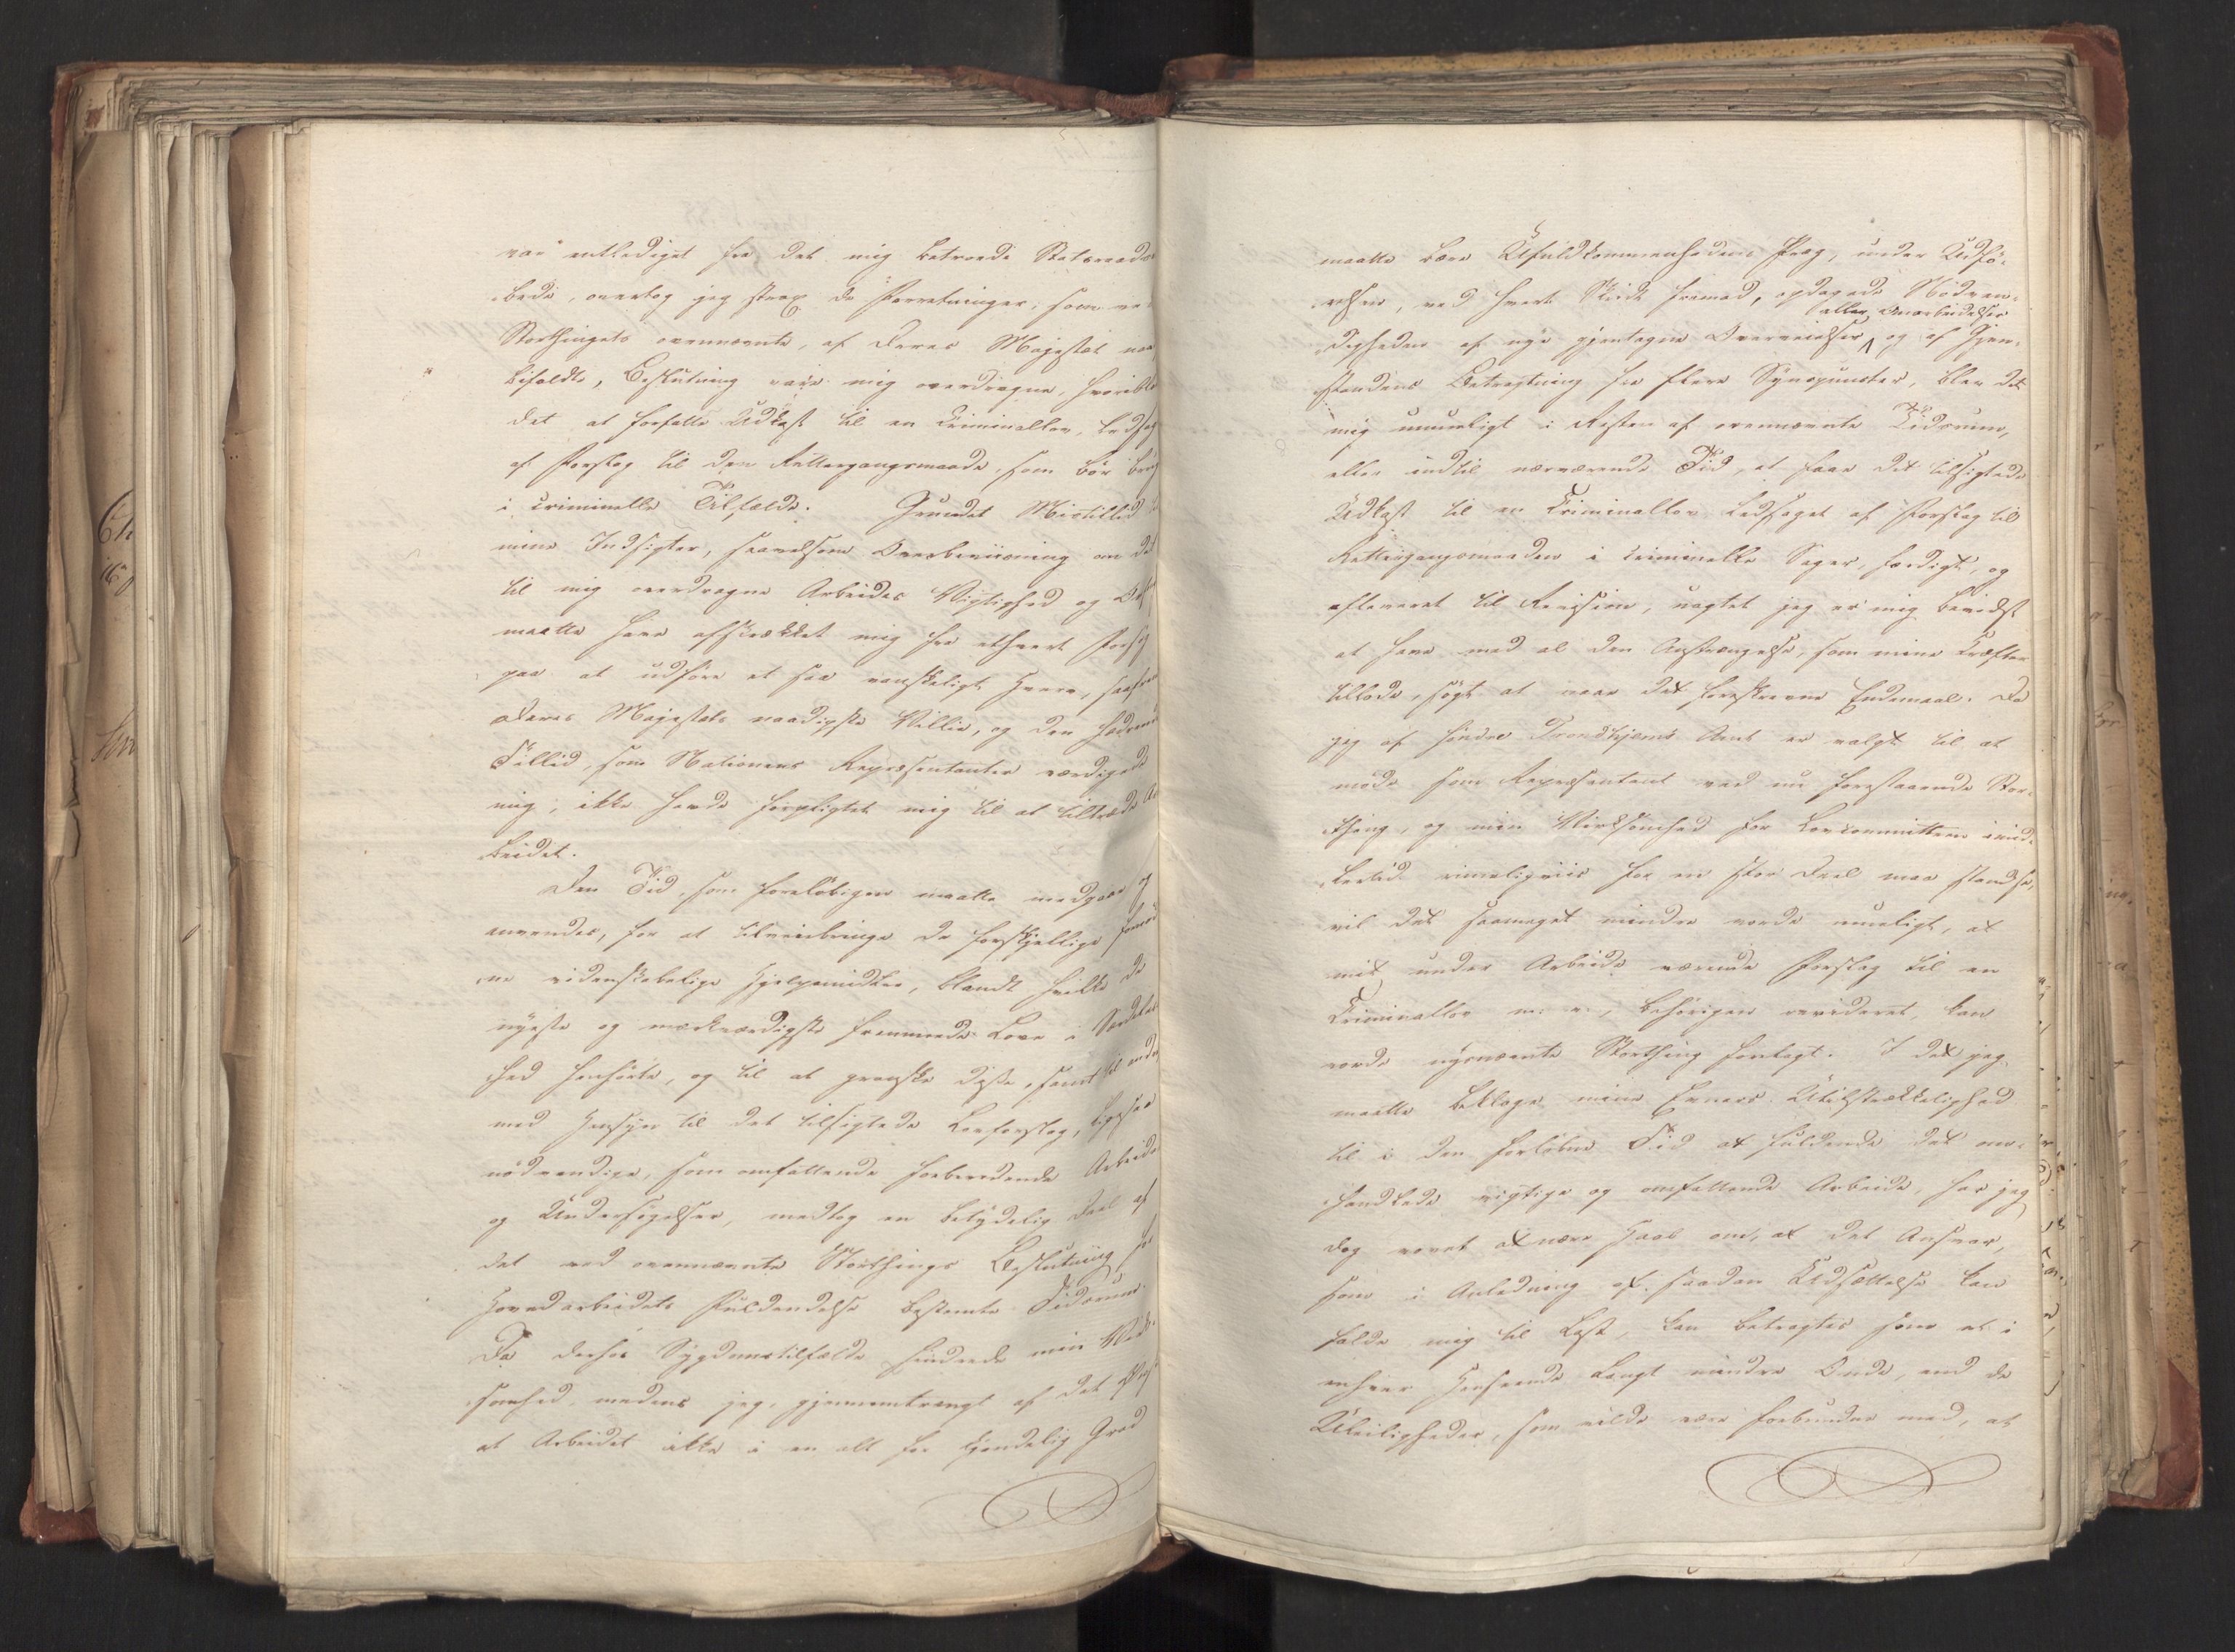 var entlediget fra det mig betroede Statsraads
embede, overtog jeg strax de Forretninger, som ved
Storthingets ovennævnte, af Deres Majestæt naa
bifaldte, Beslutning vare mig overdragne, hvoriblandt
det at forfatte Udkast til en Criminallov, ledsag
af Forslag til den Rettergangsmaade, som bör brug
i criminelle Tilfælde. Grundet Mistillid til
mine Indsigter, saavelsom Overbeviisning om det
til mig overdragne Arbeides Vigtighed og
maatte have afskrækket mig fra ethvert Forsøg
paa at udföre et saa vanskeligt Hverv, saafremt
Deres Majestæts naadigste Villie, og den hædrende
Tillid, som Nationens Repræsentanter værdigede
mig, ikke havde forpligtet mig til at tiltræde Ar
beidet.
Den Tid, som foreløbigen maatte medgaae og
anvendes, for at tilveiebringe de forskjellige fornød
ne videnskabelige Hjelpemidler, blandt hvilke de
nyeste og mærkværdigste fremmede Love i Særdeles
hed henhörte, og til at granske disse, samt til andre
med Hensyn til det tilsigtede Lovforslag, ligesaa
nödvendige, som omfattende forberedende Arbeider
og Undersögelser, medtog en betydelig Deel af
det ved ovennævnte Storthings Beslutning for
Hovedarbeidets Fuldendelse bestemte Tidsrum.
Da derhos Sygdomstilfælde hindrede min Virk-
somhed, medens jeg, gjennemtrængt af det Ønske
at Arbeidet ikke i en alt for kjendelig Grad
maatte bære Ufuldkommenhedens Præg, under Udfö-
relsen, ved hvert Skridt fremad, opdagede Nödven-
digheden af nye gjentagne Overveielser, og af Gjen-
eller Omarbeidelser
standens Betragtning fra flere Synspuncter, blev det
mig umueligt i Resten af ovennævnte Tidsrum,
eller indtil nærværende Tid, at faae det tilsigtede
Udkast til en Criminallov ledsaget af Forslag til
Rettergangsmaaden i criminelle Sager, færdigt, og
afleveret til Revision, uagtet jeg er mig bevidst
at have med al den Anstrængelse, som mine Kræfter
tillode, sögt at naae det foreskrevne Endemaal. Da
jeg af söndre Trondhjems Amt er valgt til at
möde som Repræsentant ved nu forestaaende Stor-
thing, og min Virksomhed for Lovcommitteen imid-
lertid rimeligviis for en stor Deel maa standse,
vil det saameget mindre vorde mueligt, at
mit under Arbeide værende Forslag til en
Criminallov m: v:, behörigen revideret, kan
vorde nysnævnte Storthing forelagt. I det jeg
maatte beklage mine Evners Utilstrækkelighed
til i den forløbne Tid at fuldende det om-
handlede vigtige og omfattende Arbeide, har jeg
dog vovet at nære Haab om, at det Ansvar,
som i Anledning af saadan Udsættelse kan
falde mig til Last, kan betragtes som et i
enhver Henseende langt mindre Onde, end de
Uleiligheder, som vilde være forbundne med, at